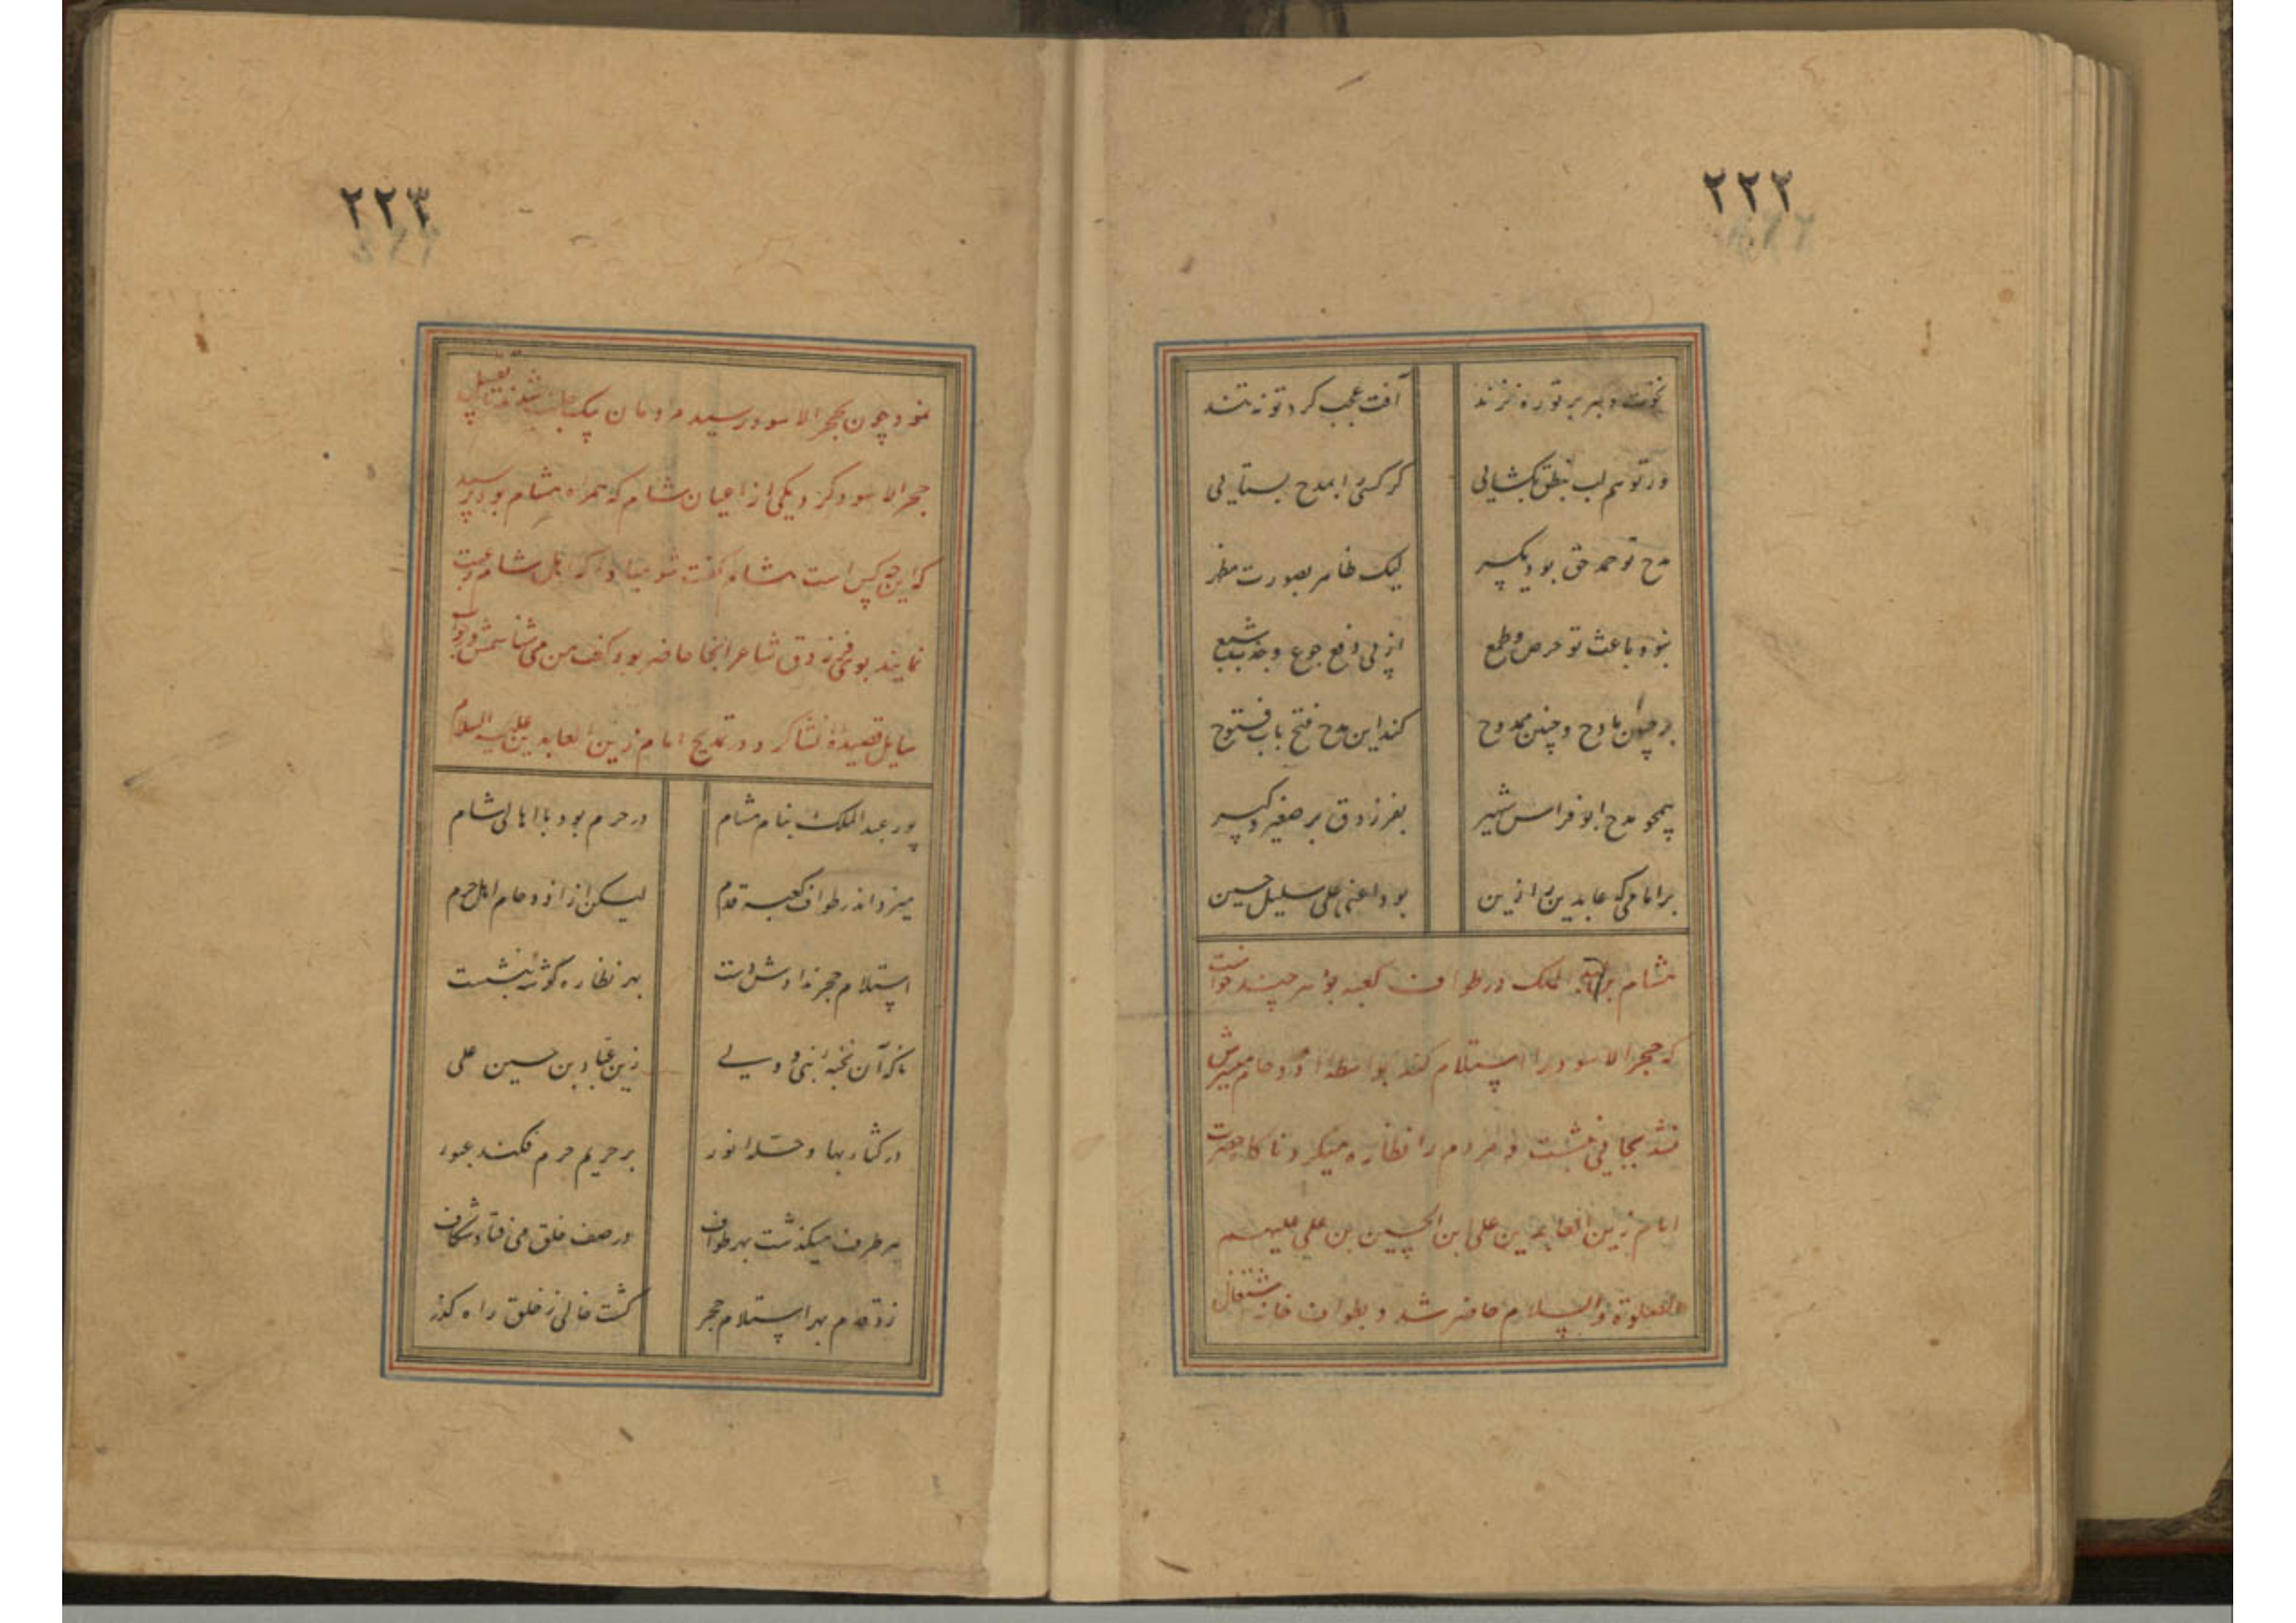 ٢٢٢
نخوت و کبر بر تو ره نزند آفت عجب گرد تو نه تند
ور تو هم لب بنطق بگشایی گر کسی را بمدح بستایی
مدح تو حمد حق بود یکسر لیک ظاهر بصورت مظهر
نبود باعث تو حرص و طمع از پی دفع جوع و جذب شبع
بر چنان مادح و چنین ممدوح کند این مدح فتح باب فتوح
همچو مدح ابو فراس شهیر بفرزدق بر صغیر و کبیر
بر امامی که عابدین را زین بود اعنی علی سلیل حسین
هشام بن عبد الملک در طواف کعبه بود هر چند خواست
که حجر الاسود را استلام کند بواسطه ازدحام میسرش
نشد بجایی نشست و مردم را نظاره میکرد ناگاه حضرت
امام زین العابدین علی بن الحسین بن علی علیهم
الصلوة والسلام حاضر شد و بطواف خانه اشتغال
٢٢٣
نمود چون بحجر الاسود رسید مردمان یک جانب شدند تا تقبیل
حجر الاسود کرد یکی از اعیان شام که همراه هشام بود پرسید
که این چه کس است هشام گفت مبادا که اهل شام رغبت
نمایند بوی فرزدق شاعر آنجا حاضر بود گفت من می شناسمش و در جواب
سایل قصیده انشا کرد در مدیح امام زین العابدین علیه السلام
پور عبد الملک بنام هشام در حرم بود با اهالی شام
میزد اندر طواف کعبه قدم لیکن از ازدحام اهل حرم
استلام حجر ندادش دست بهر نظاره گوشه بنشست
ناگه آن نخبه نبی و ولی زین عباد بن حسین علی
در کساء بها و حله نور بر حریم حرم فکند عبور
هر طرف میگذشت بهر طواف در صف خلق می فتاد شکاف
زد قدم بهر استلام حجر گشت خالی ز خلق راه گذر